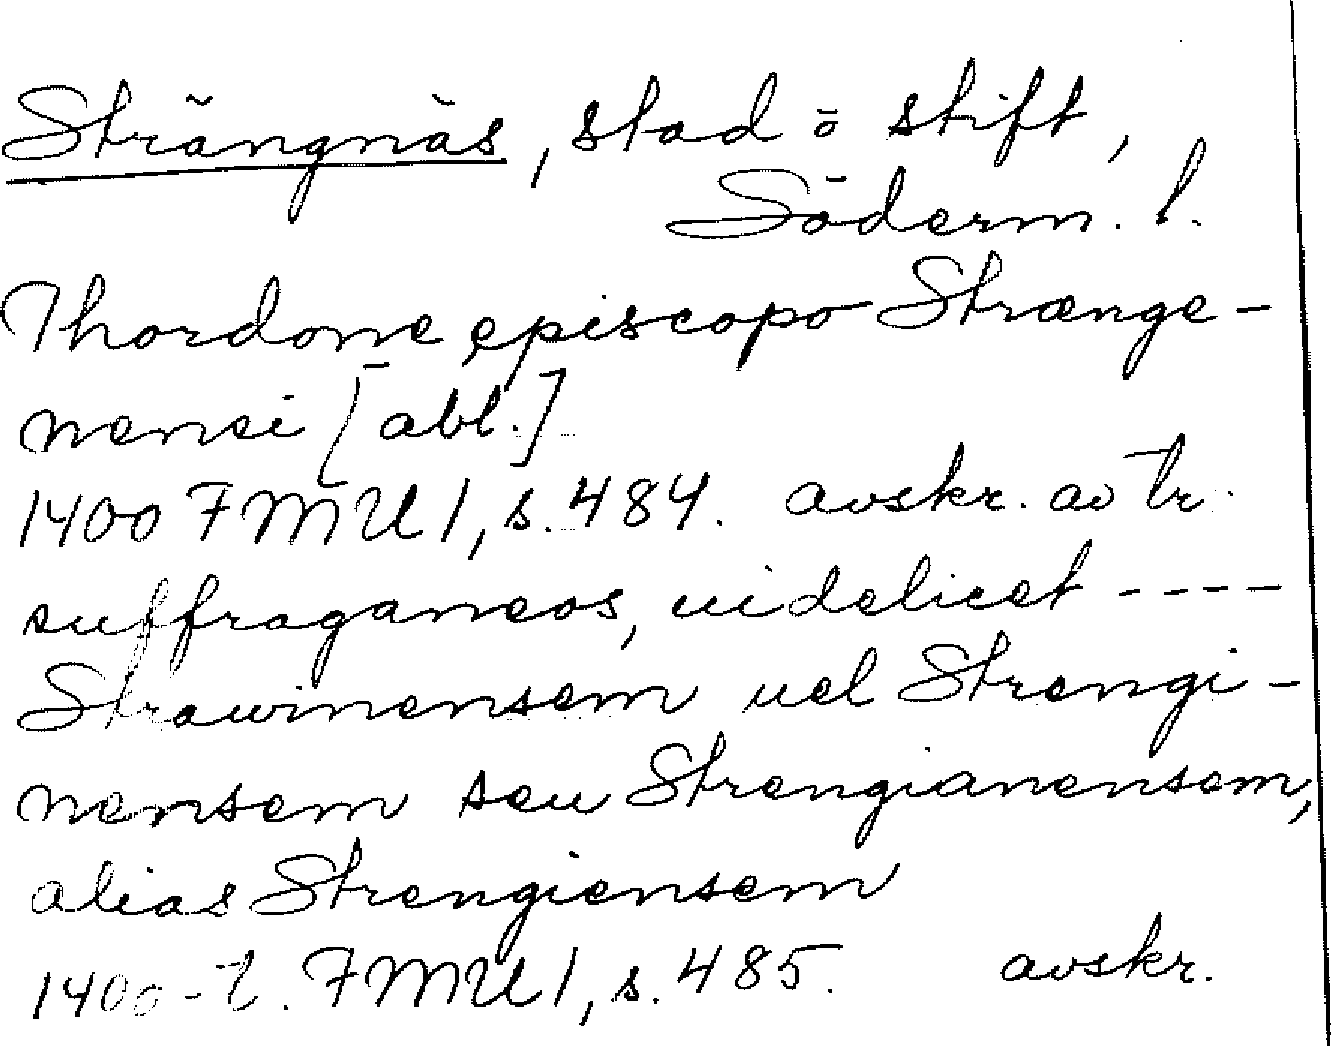 Strängnäs, stad o stift,
Söderm. l.
Thordone episcopo Strænge-
nensi [abl.]
1400 FMU 1, s. 484. avskr. av tr.
suffraganeos, uidelicet ----
Strawinensem uel Strengi-
nensem seu Strengianensem,
alias Strengiensem
1400-t. FMU 1, s. 485. avskr.